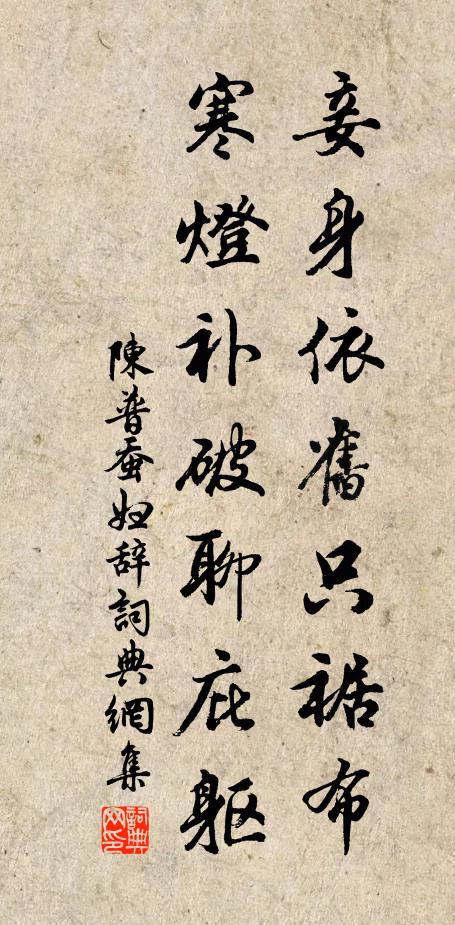 妾身依舊只裾布
寒燈补破聊庇軀
陳普蚕妇辞詞典網集
詞典網印